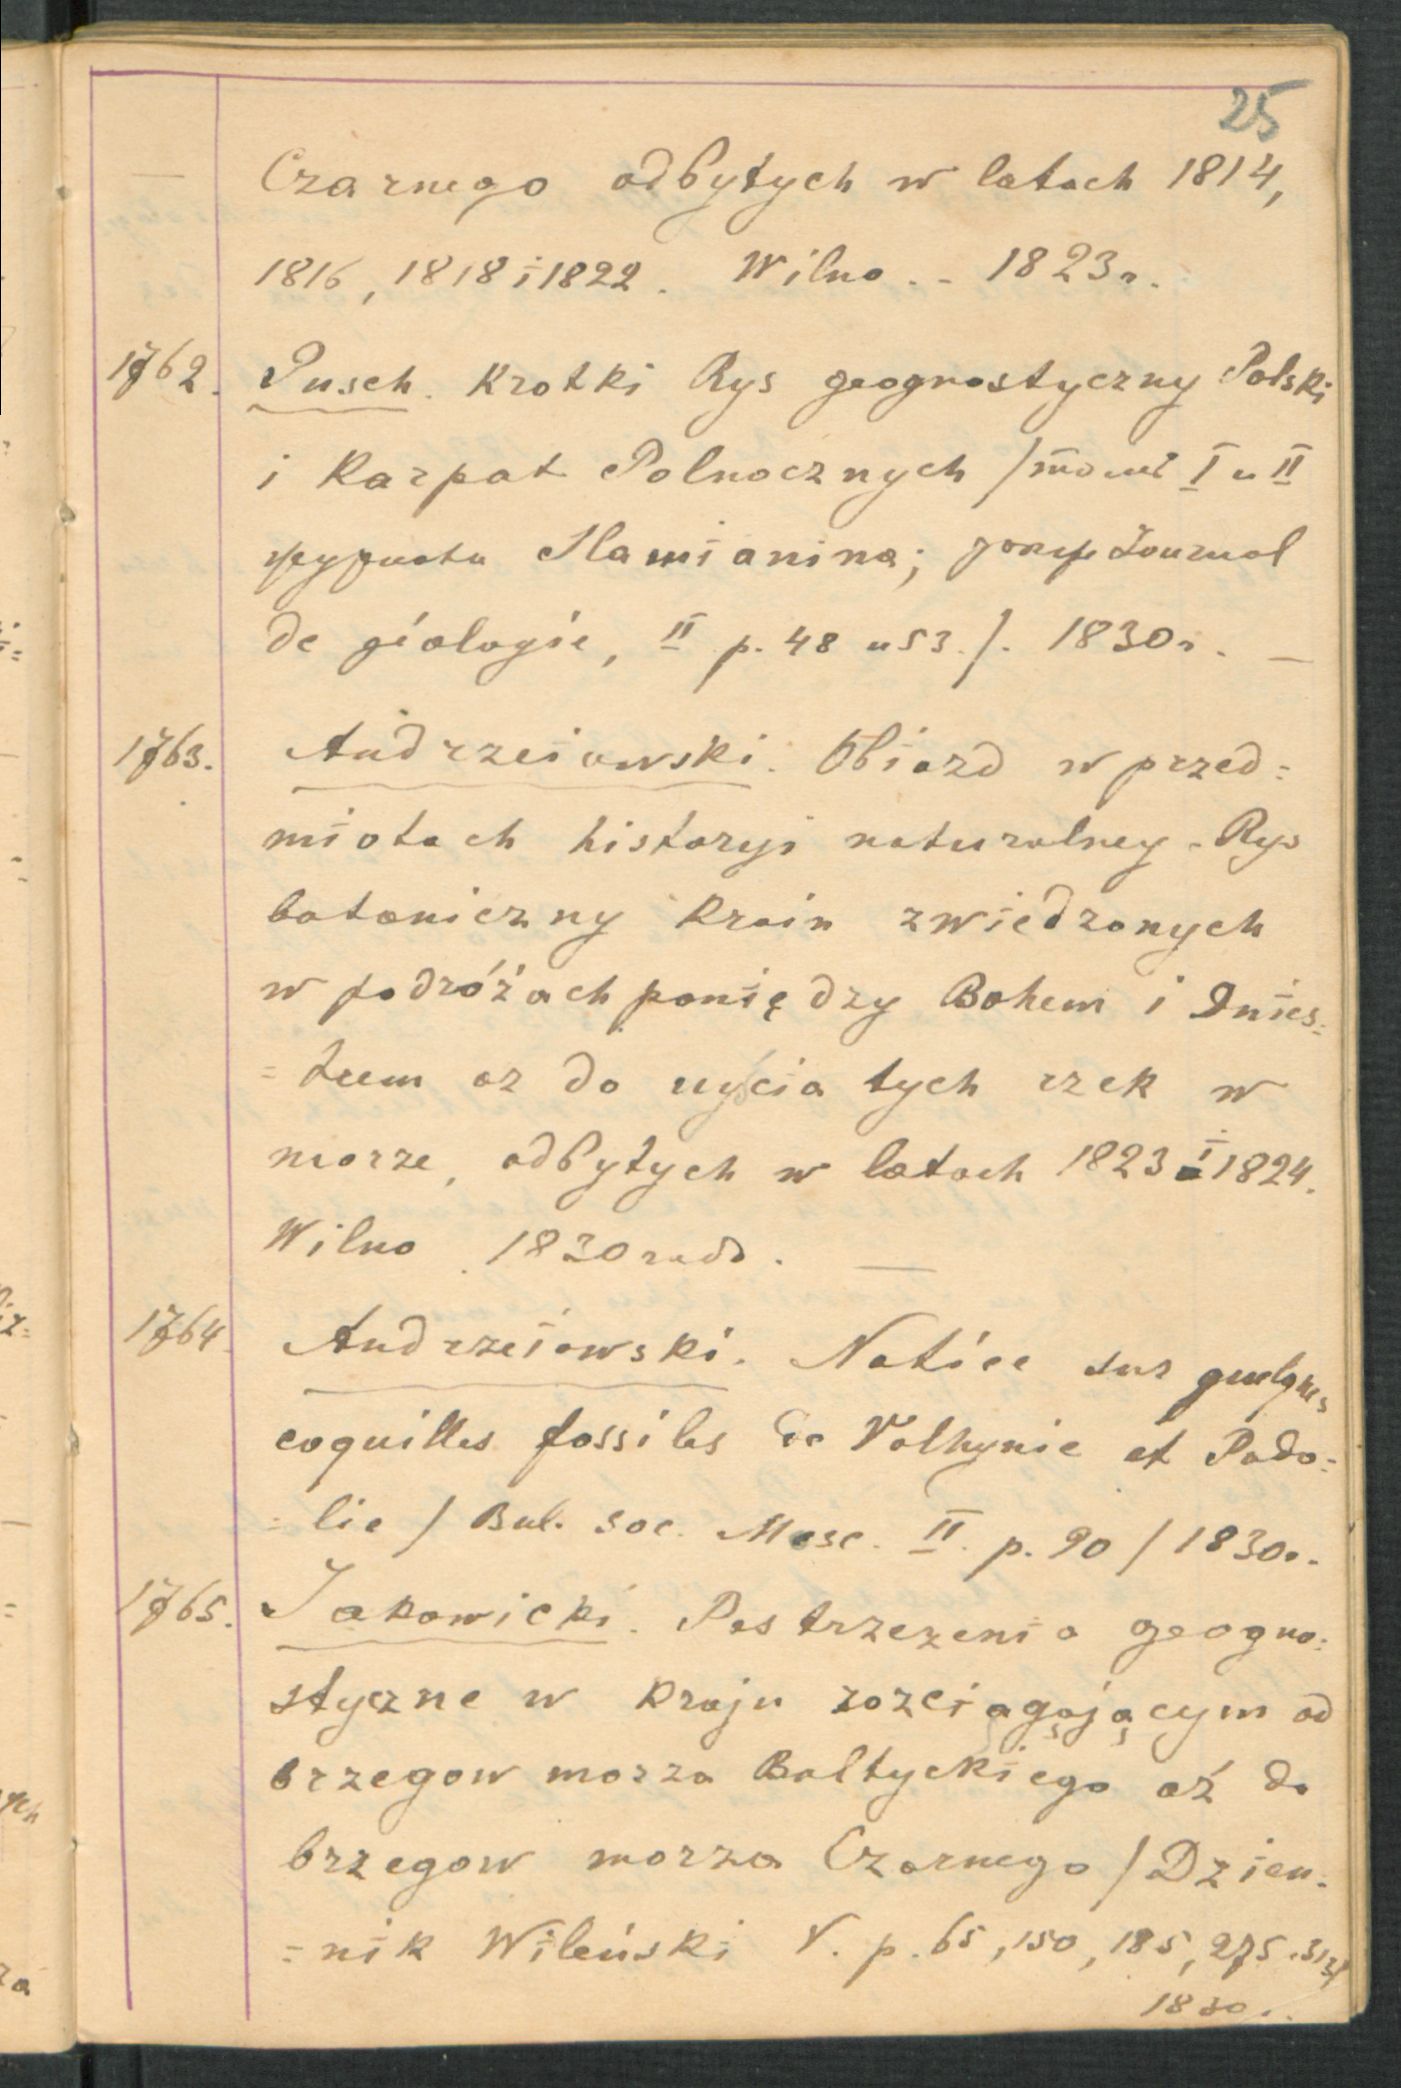 25
— Czarnego odbytych w latach 1814,
1816, 1818 i 1822. Wilno. - 1823 г.
1762. Pusch. Krotki Rys geognostyczny Polski
i Karpat Polnocznych / томы I и II
журнала Slawianina; Journal
de géologie, II p. 48 и 53. /. 1830 г. —
1763. Andrzeiowski. Obiazd w przed=
miotach historyi naturalney. Rys
botaniczny Krain zwiedzonych
w podróżach poniędzy Bohem i Dnies=
=trem az do uyścia tych rzek w
morze, odbytych w latach 1823 i 1824.
Wilno 1830 года. —
1764. Andrzeiowski. Notice sur quelques
coquilles fossiles de Volhynie et Podo=
=lie / Bul. Soc. Mosc. II. p. 90 / 1830 г.
1765. Jakowicki. Postrzezenia geogno=
styczne w Kraju rozciągającym od
brzegow morza Baltyckiego aź do
brzegow morza Czarnego / Dzien=
=nik Wileński V. p. 65, 150, 185, 275
1830 г.